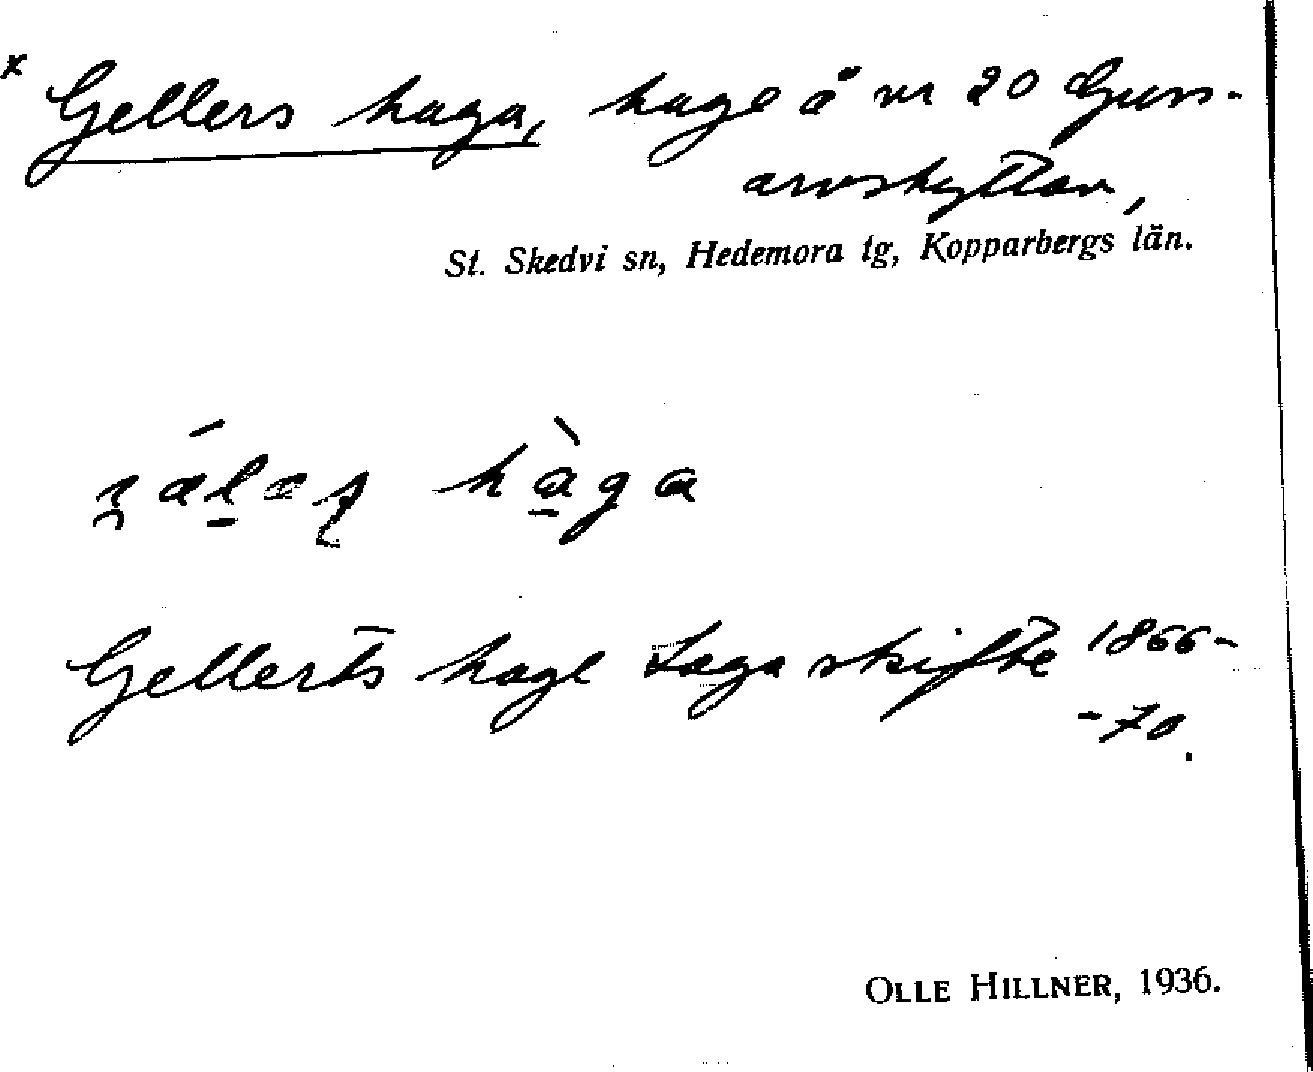 x Gellers haga, hage å nr 20 Guss-
arvshyttan,
St. Skedvi sn, Hedemora tg, Kopparbergs län.
hàga
Gellerts hage Laga skifte 1866-
-70.
OLLE HILLNER, 1936.